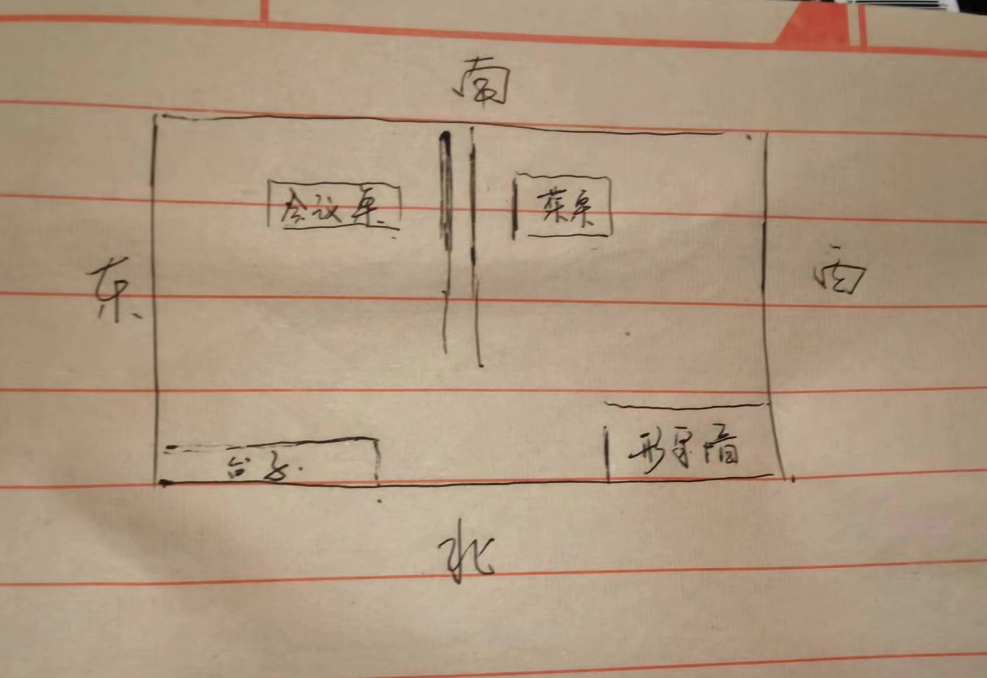 南
会议桌
茶桌
东
西
台子
形象墙
北